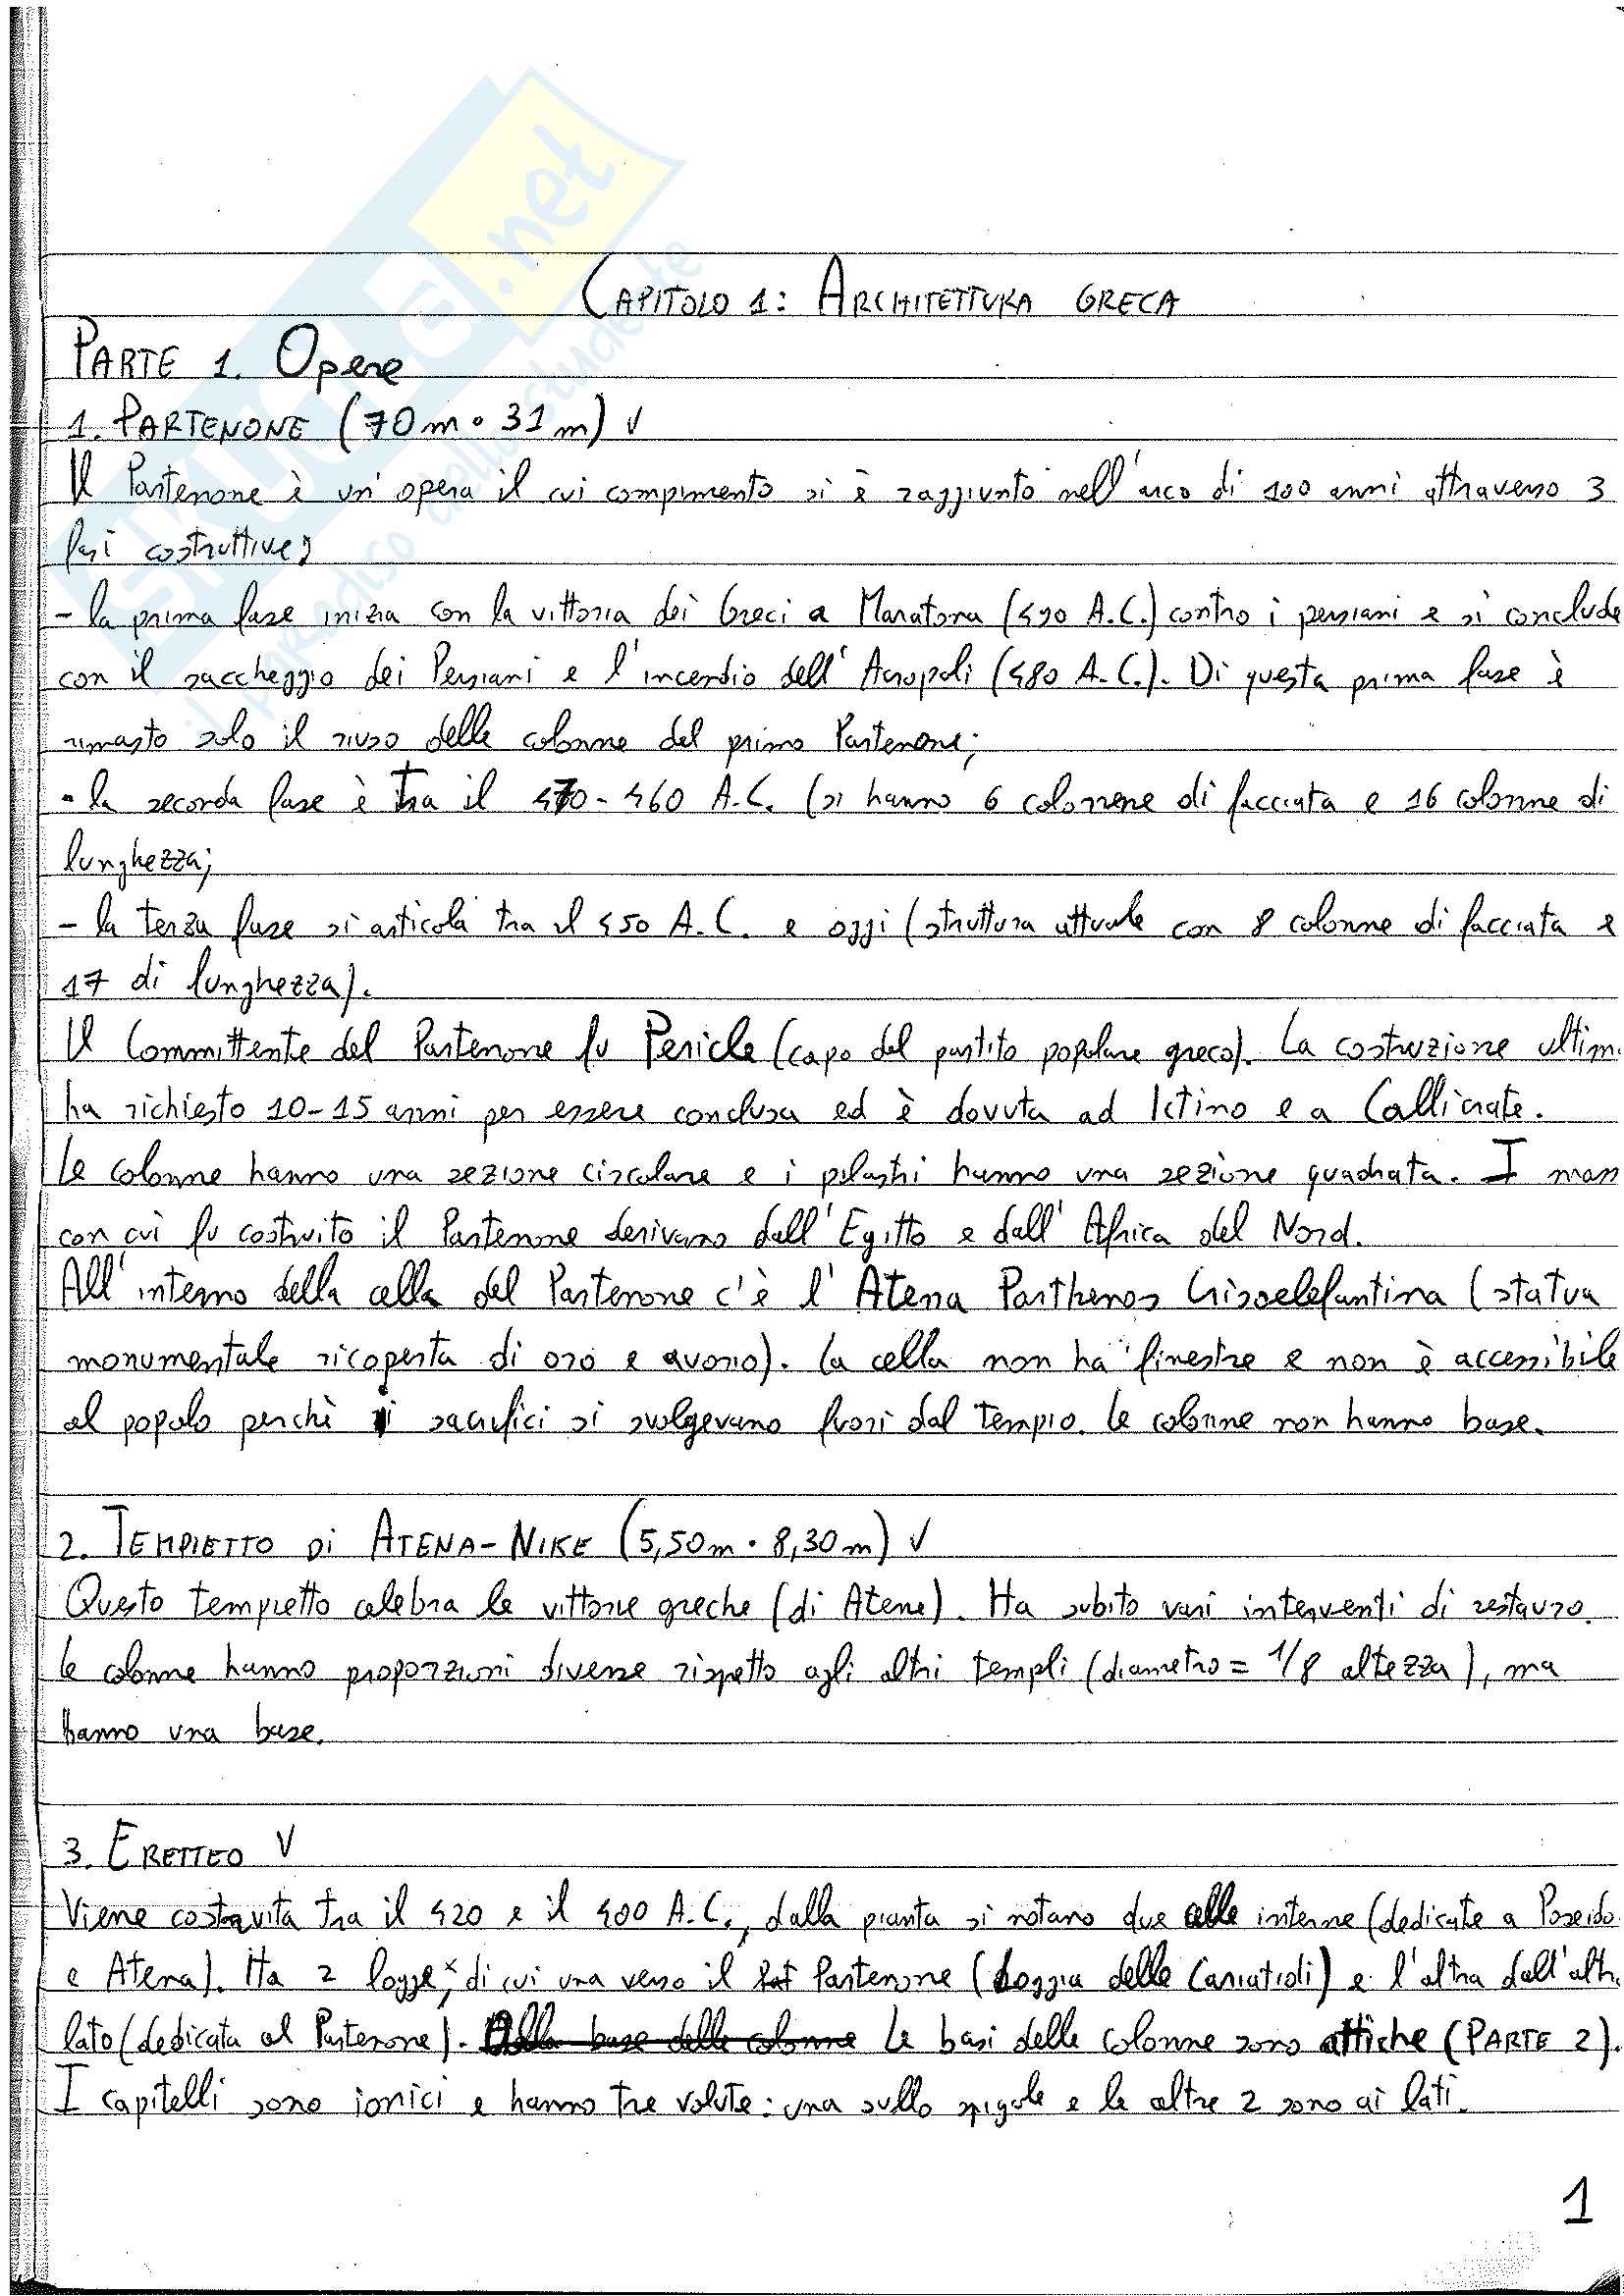 CAPITOLO 1: ARCHITETTURA GRECA
PARTE 1. Opere
1. PARTENONE (70m • 31m) √
Il Partenone è un'opera il cui compimento si è raggiunto nell'arco di 100 anni attraverso 3
fasi costruttive:
- la prima fase inizia con la vittoria dei Greci a Maratona (490 A.C.) contro i persiani e si conclude
con il saccheggio dei Persiani e l'incendio dell'Acropoli (480 A.C.). Di questa prima fase è
rimasto solo il riuso delle colonne del primo Partenone;
- la seconda fase è tra il 470-460 A.C. (si hanno 6 colonnene di facciata e 16 colonne di
lunghezza;
- la terza fase si articola tra il 450 A.C. e oggi (struttura attuale con 8 colonne di facciata e
17 di lunghezza).
Il Committente del Partenone fu Pericle (capo del partito popolare greco). La costruzione ultim
ha richiesto 10-15 anni per essere conclusa ed è dovuta ad Ictino e a Callicrate.
Le colonne hanno una sezione circolare e i pilastri hanno una sezione quadrata. I
con cui fu costruito il Partenone derivano dall'Egitto e dall'Africa del Nord.
All'interno della cella del Partenone c'è l'Atena Parthenos Crisoelefantina (statua
monumentale ricoperta di oro e avorio). La cella non ha finestre e non è accessibile
al popolo perchè i sacrifici si svolgevano fuori dal tempio. Le colonne non hanno base.
2. TEMPIETTO Di ATENA-NIKE (5,50m • 8,30m) √
Questo tempietto celebra le vittorie greche (di Atene). Ha subito vari interventi di restauro.
Le colonne hanno proporzioni diverse rispetto agli altri templi (diametro = 1/8 altezza), ma
hanno una base.
3. ERETTEO √
Viene costruita tra il 420 e il 400 A.C., dalla pianta si notano due celle interne (dedicate a Poseido
e Atena). Ha 2 logge, di cui una verso il Partenone (Loggia delle Cariatidi) e l'altra dall'altr
lato (dedicata al Partenone). Dalla base delle colonne Le basi delle colonne sono attiche (PARTE 2).
I capitelli sono ionici e hanno tre volute: una sullo spigolo e le altre 2 sono ai lati.
1
SKUOLA.net
il paradiso dello studente